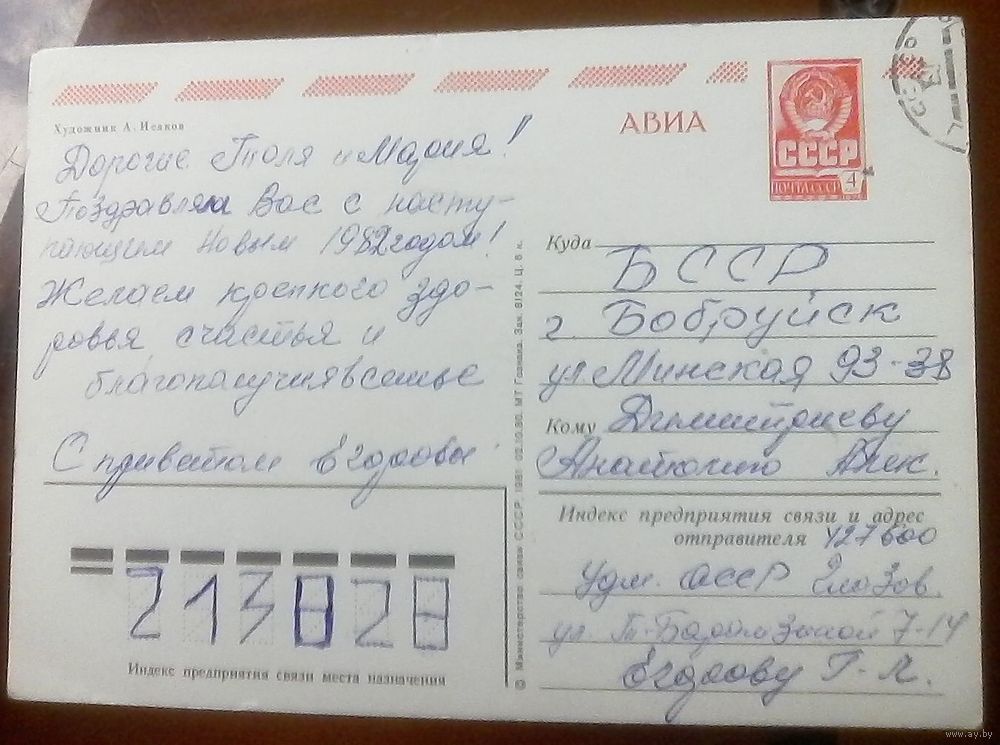 Художник А. Исаков
АВИА
СССР
ПОЧТА СССР 4
Дорогие Толя и Мария!
Поздравляя Вас с насту-
пающим Новым 1982 годом!
Желаем крепкого здо-
ровья счастья и
благополучия в семье
С приветом Егоровы
Куда БССР
г. Бобруйск
ул Минская 93-38
Кому Димитриеву
Анатолию Алек.
Индекс предприятия связи и адрес
отправителя 427600
Удм. АССР Глазов.
ул. Т-Барамзиной 7-14
Егорову Г. Л.
213828
Индекс предприятия связи места назначения
© Министерство связи СССР. 1981 02.10.80. МТ Гознака. Зак. 8124. Ц. 5 к.
www.ay.by